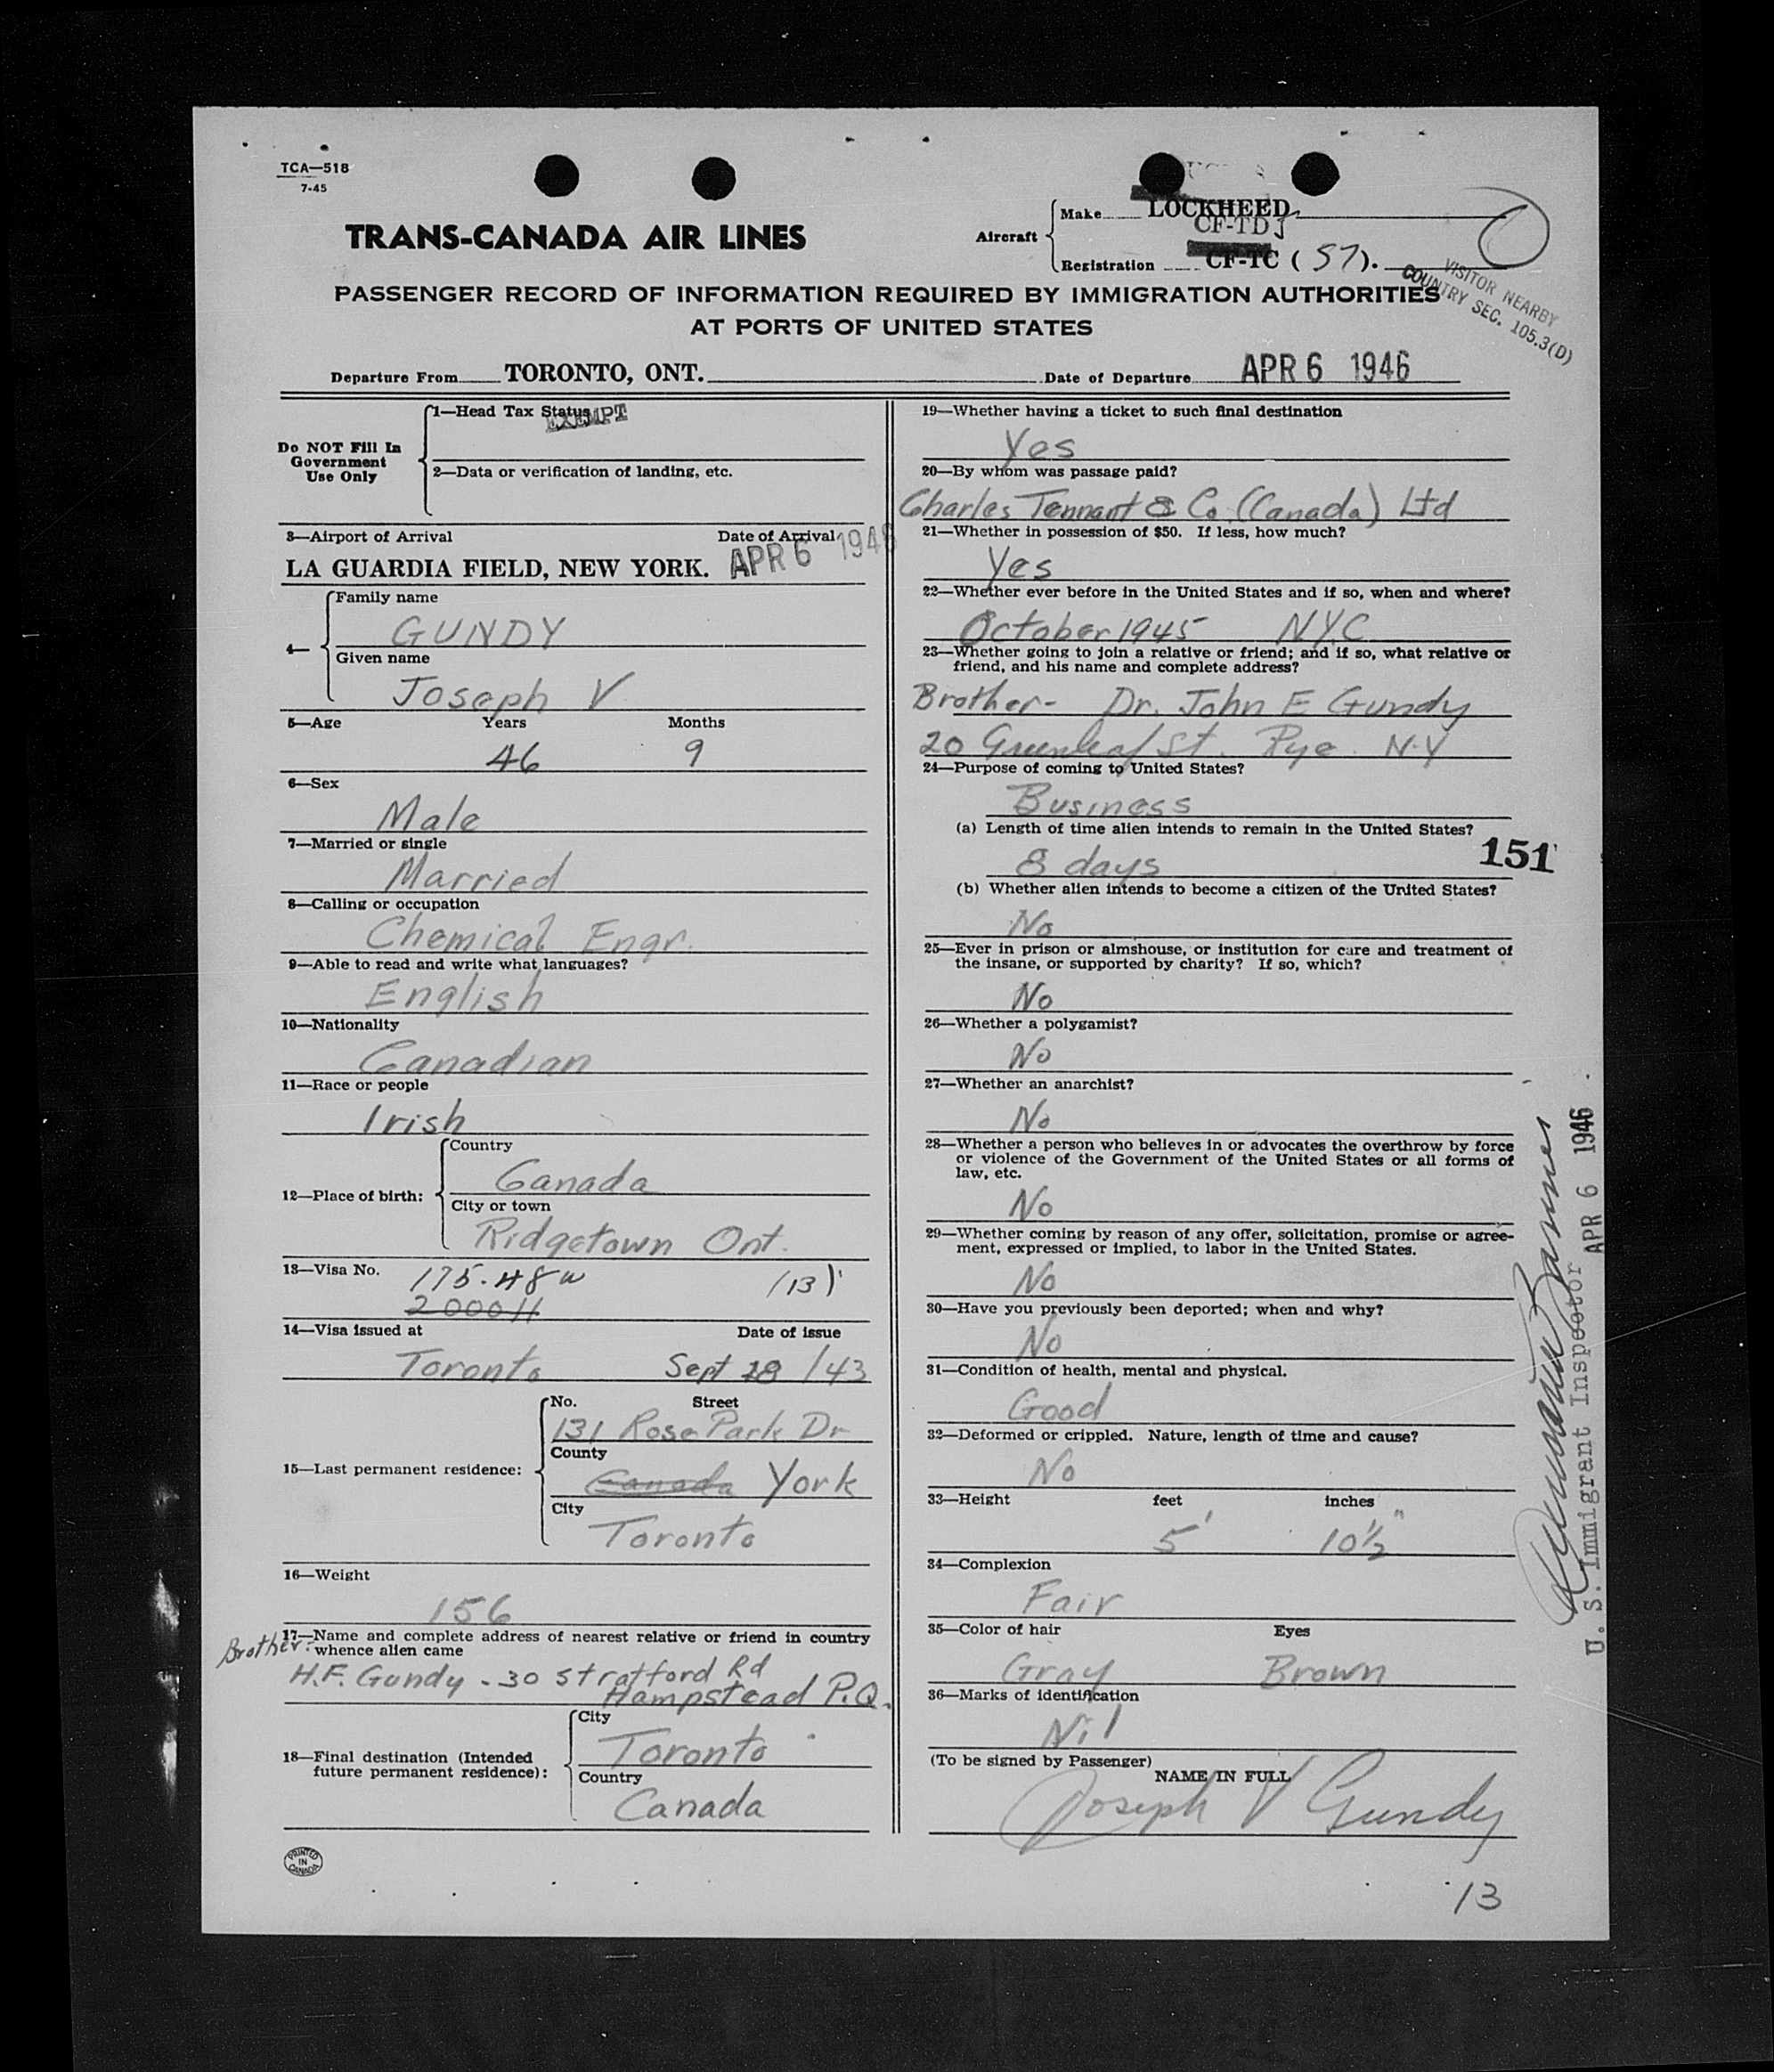 TCA—518
7-45
TRANS-CANADA AIR LINES
Aircraft
Make LOCKHEED
CF-TDJ
Registration CF-TC ( 57 ).
VISITOR NEARBY
COUNTRY SEC. 105.3(D)
PASSENGER RECORD OF INFORMATION REQUIRED BY IMMIGRATION AUTHORITIES
AT PORTS OF UNITED STATES
Departure From TORONTO, ONT. Date of Departure APR 6 1946
Do NOT Fill In
Government
Use Only
1—Head Tax Status EXEMPT
2—Data or verification of landing, etc.
3—Airport of Arrival Date of Arrival
LA GUARDIA FIELD, NEW YORK. APR 6 1946
4—
Family name
GUNDY
Given name
Joseph V
5—Age Years Months
46 9
6—Sex
Male
7—Married or single
Married
8—Calling or occupation
Chemical Engr.
9—Able to read and write what languages?
English
10—Nationality
Canadian
11—Race or people
Irish
12—Place of birth:
Country
Canada
City or town
Ridgetown Ont.
13—Visa No. 175.48w (13)
2000H
14—Visa issued at Date of issue
Toronto Sept 28 /43
15—Last permanent residence:
No. Street
131 Rose Park Dr
County
Canada York
City
Toronto
16—Weight
156
17—Name and complete address of nearest relative or friend in country
Brother: whence alien came
H.F. Gundy - 30 Stratford Rd
Hampstead P.Q.
18—Final destination (Intended
future permanent residence):
City
Toronto
Country
Canada
PRINTED
IN
CANADA
19—Whether having a ticket to such final destination
Yes
20—By whom was passage paid?
Charles Tennant & Co. (Canada) Ltd
21—Whether in possession of $50. If less, how much?
Yes
22—Whether ever before in the United States and if so, when and where?
October 1945 NYC
23—Whether going to join a relative or friend; and if so, what relative or
friend, and his name and complete address?
Brother- Dr. John E Gundy
20 Greenleaf St. Rye N.Y
24—Purpose of coming to United States?
Business
(a) Length of time alien intends to remain in the United States?
8 days
151
(b) Whether alien intends to become a citizen of the United States?
No
25—Ever in prison or almshouse, or institution for care and treatment of
the insane, or supported by charity? If so, which?
No
26—Whether a polygamist?
No
27—Whether an anarchist?
No
28—Whether a person who believes in or advocates the overthrow by force
or violence of the Government of the United States or all forms of
law, etc.
No
29—Whether coming by reason of any offer, solicitation, promise or agree-
ment, expressed or implied, to labor in the United States.
No
30—Have you previously been deported; when and why?
No
31—Condition of health, mental and physical.
Good
32—Deformed or crippled. Nature, length of time and cause?
No
33—Height feet inches
5' 10½"
34—Complexion
Fair
35—Color of hair Eyes
Gray Brown
36—Marks of identification
Nil
(To be signed by Passenger)
NAME IN FULL
Joseph V Gundy
U. S. Immigrant Inspector APR 6 1946
13